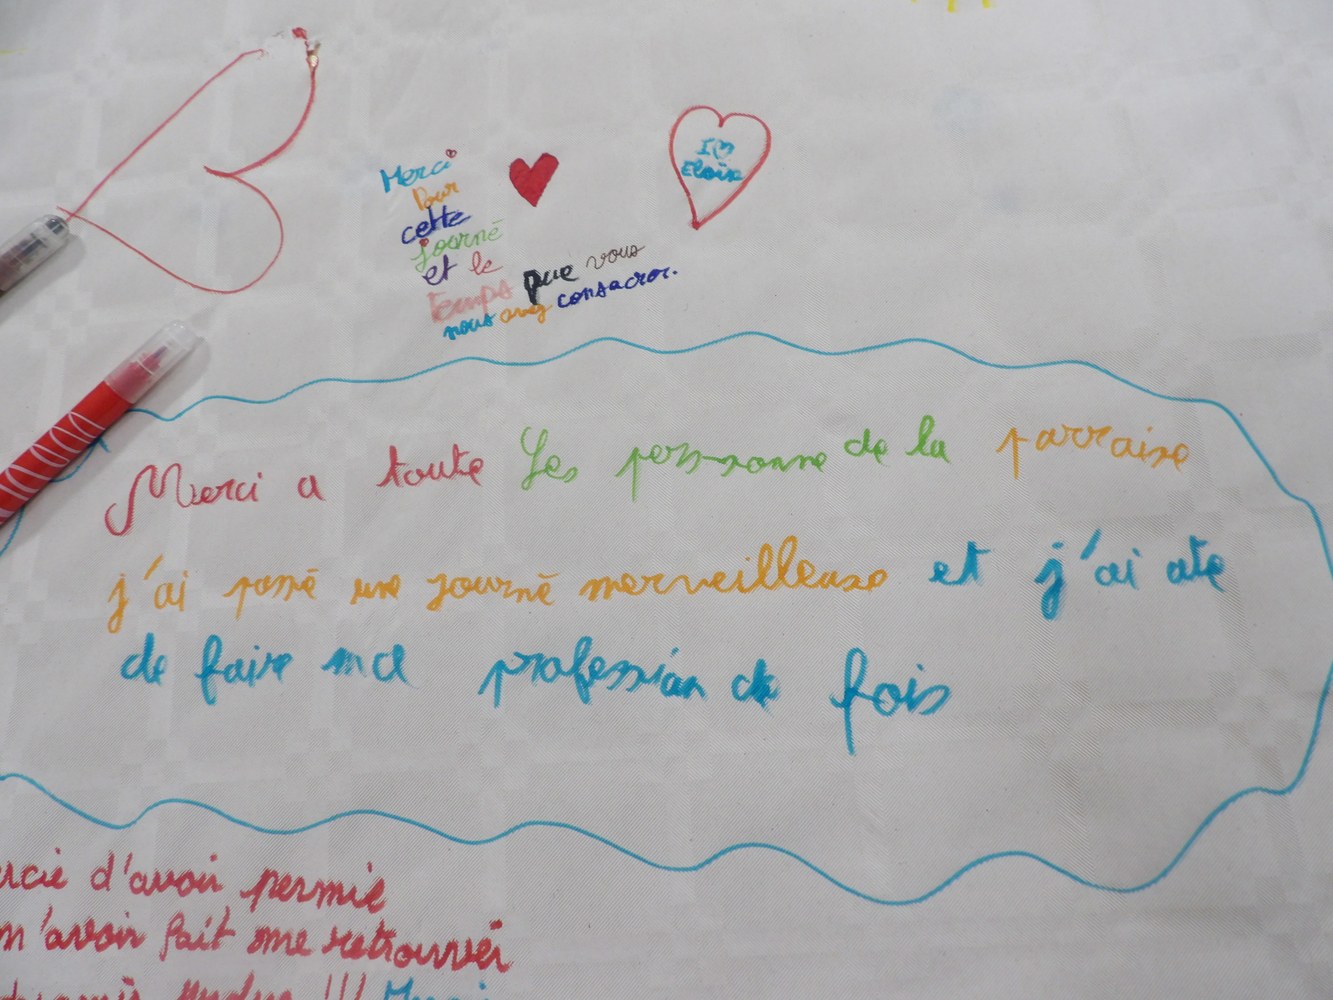 Merci
Pour
cette
journé
et le
temps que vous
nous avez consacror.
I ♡
Eloïse
Merci a toute Les personne de la parraise
j'ai passé une journé merveilleuse et j'ai ate
de faire ma profession de fois
rcie d'avoir permie
m'avoir fait me retrouver
!!! Merci